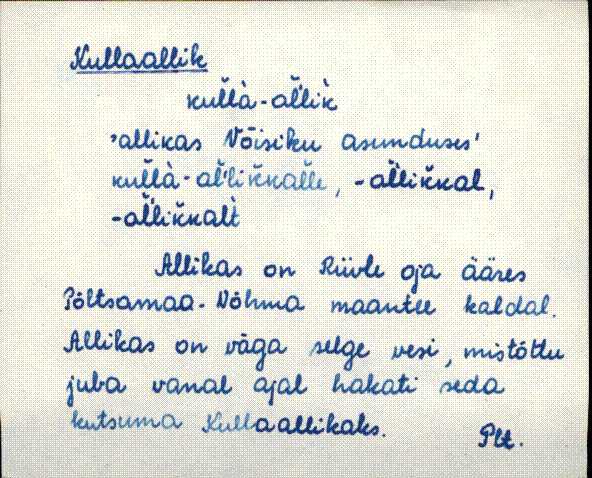 Kullaallik
kul̆là-al̆'lìk
'allikas Võisiku asunduses'
kul̆là-al̆'lik̆kal̆le, -al̆'lik̆kal,
-al̆'lik̆kalt
Allikas on Rüvle oja ääres
Põltsamaa-Võhma maantee kaldal.
Allikas on väga selge vesi, mistõttu
juba vanal ajal hakati seda
kutsuma Kullaallikaks.
Plt.